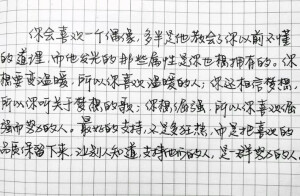 你会喜欢一个偶像，多半是他教会了你以前不懂
的道理，而他发光的那些属性是你也想拥有的。你
想要变温暖，所以你喜欢温暖的人；你还相信梦想，
所以你听关于梦想的歌；你想倔强，所以你喜欢倔
强而努力的人。最好的支持，不是多狂热，而是把喜欢的
品质保留下来，让别人知道，支持他的人，是一群努力的人。